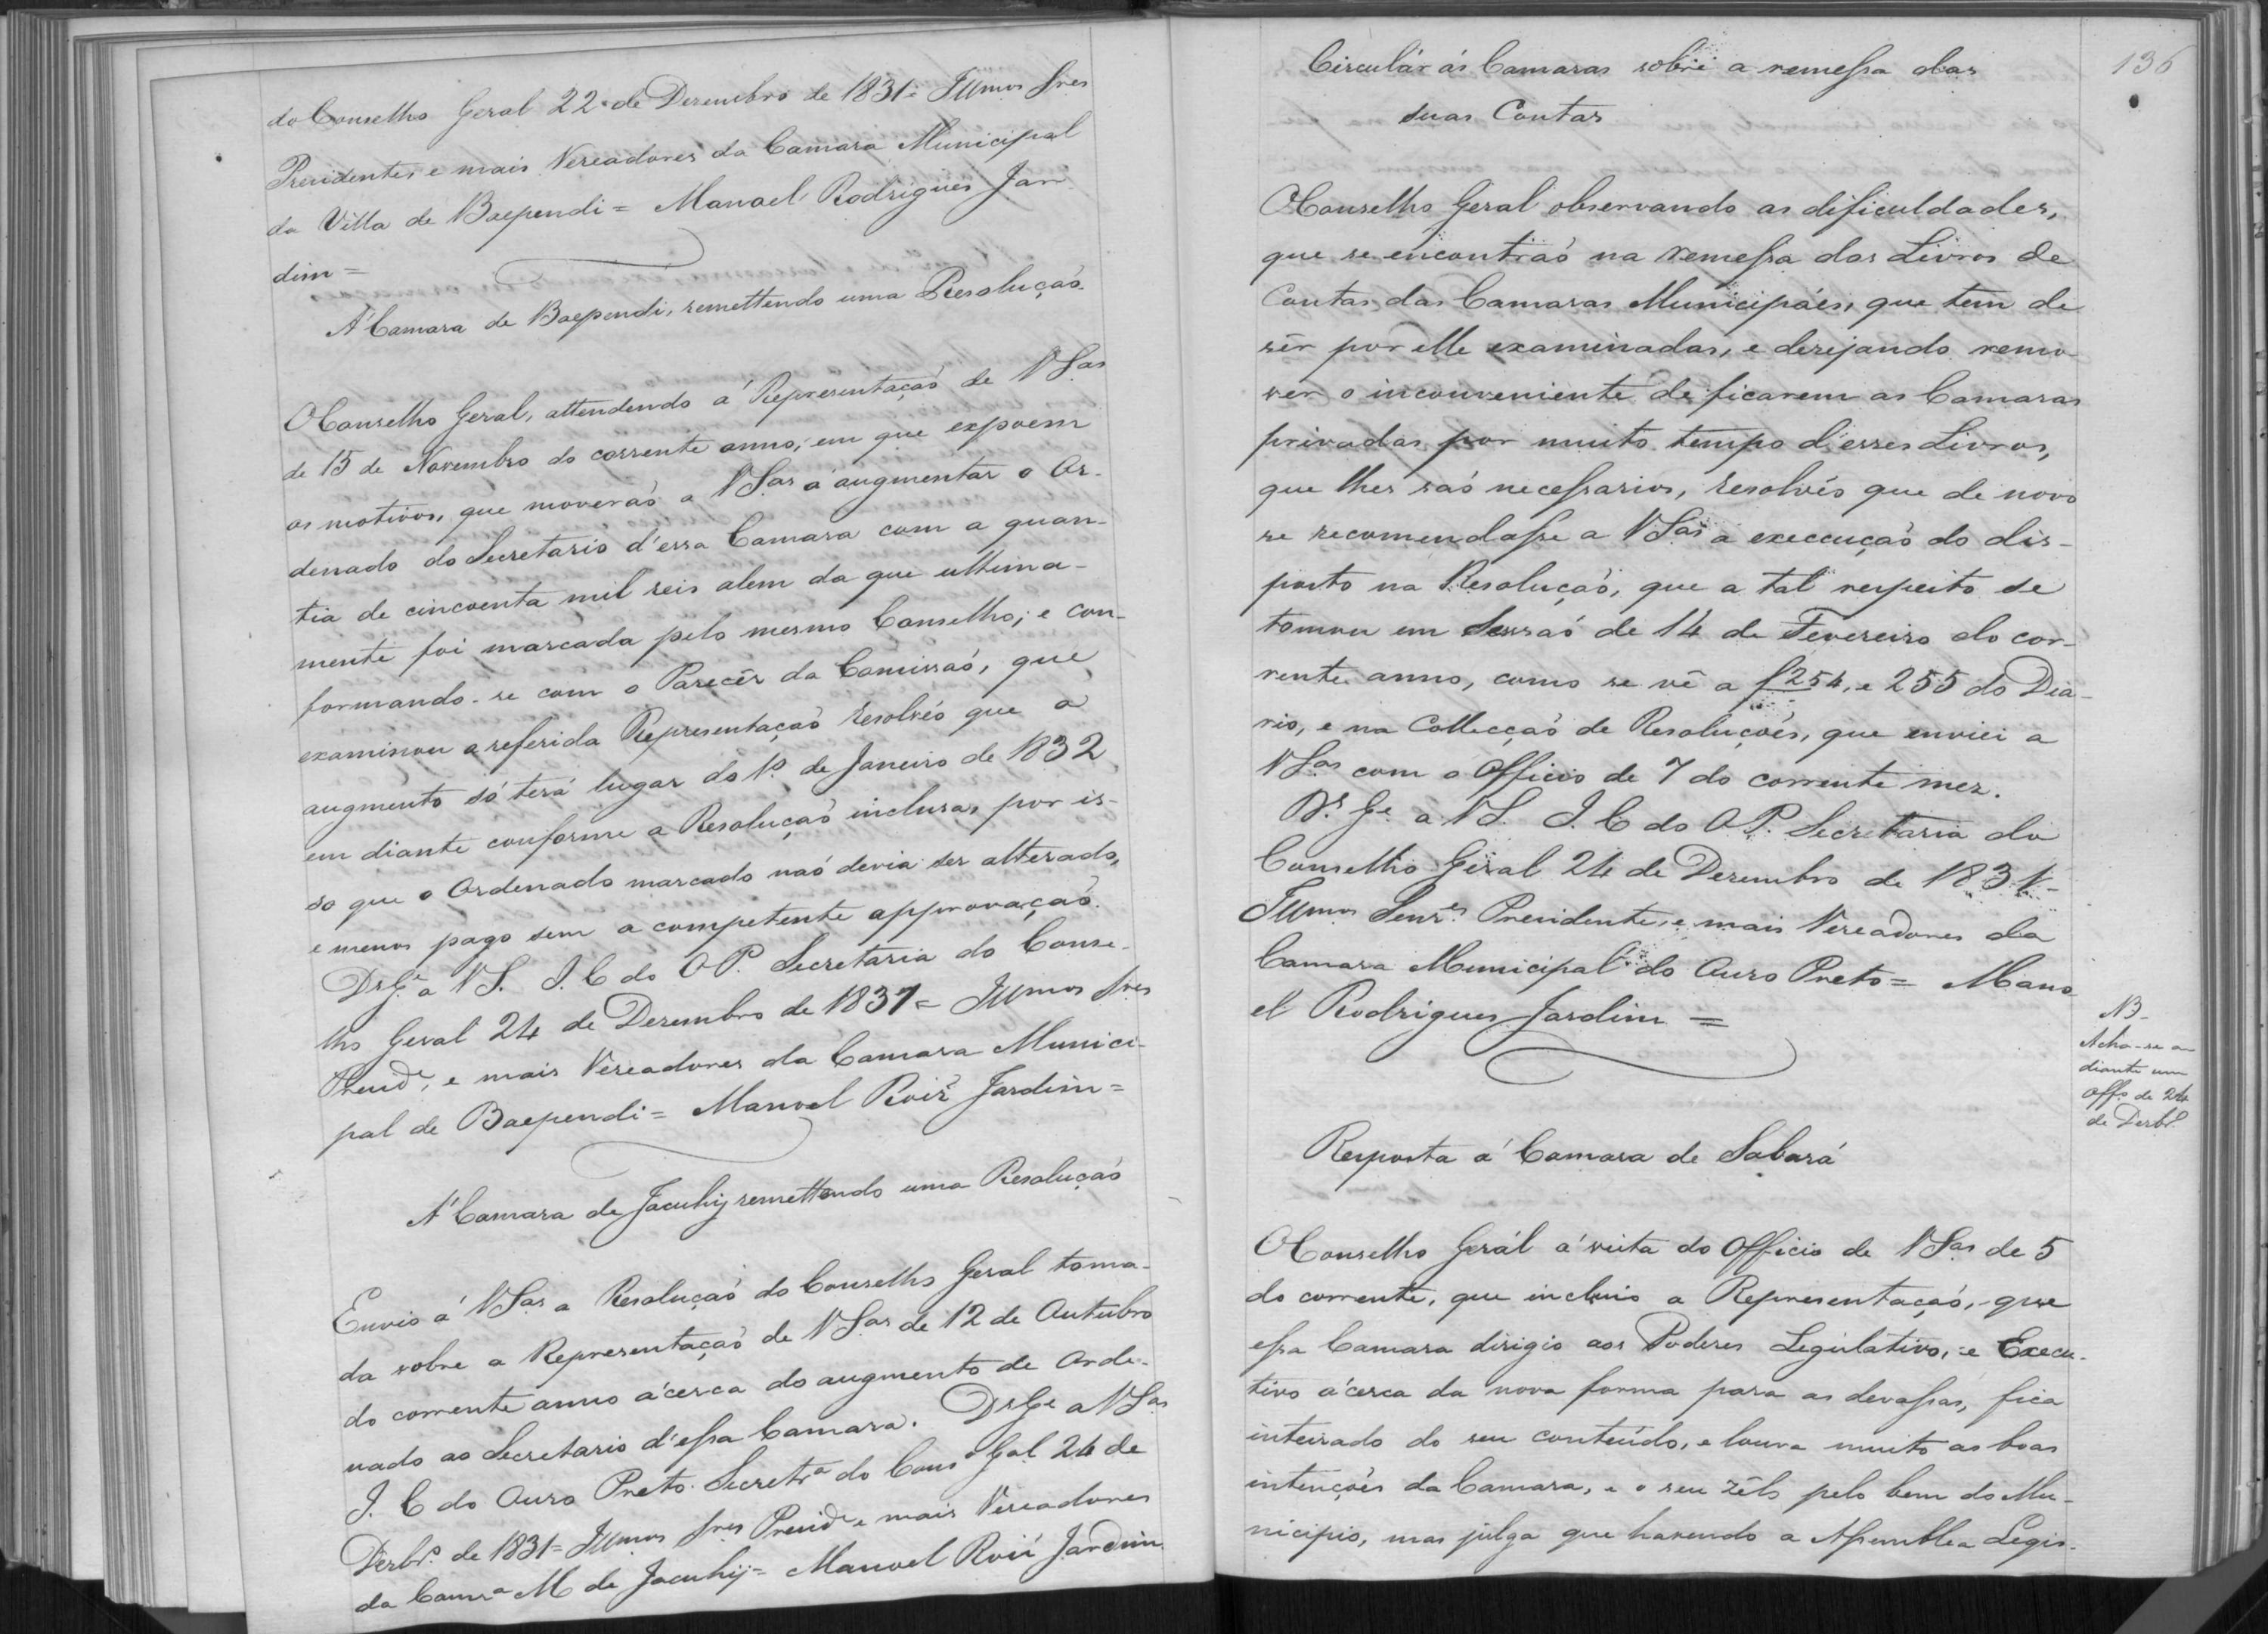 do Conselho Geral 22 de Dezembro de 1831= Illmos Snres
Presidente, e mais Vereadores da Camara Municipal
da Villa de Baependi = Manoel Rodrigues Jar
dim =
A' Camara de Baependi, remettendo uma Resoluçaõ
O Conselho Geral, attendendo á Representaçaõ de V Sas
de 15 de Novembro do corrente anno, em que expoem
os motivos, que moveraõ a V Sas a augmentar o Or-
denado do Secretario d'essa Camara com a quan-
tia de cincoenta mil reis alem da que ultima-
mente foi marcada pelo mesmo Conselho; e con-
formando-se com o Parecêr da Comissaõ, que
examinou a referida Representaçaõ resolvêo que o
augmento só terá lugar do 1º de Janeiro de 1832
em diante conforme a Resoluçaõ inclusa, por is-
so que o Ordenado marcado naõ devia ser alterado,
e menos pago sem a competente approvaçaõ.
Ds Ge a V S. I. C do O P. Secretaria do Conse-
lho Geral 24 de Dezembro de 1831= Illmos Snres
Preside, e mais Vereadores da Camara Munici-
pal de Baependi = Manoel Roiz Jardim =
A' Camara de Jacuhy remettendo uma Resoluçaõ
Envio á V Sas a Resoluçaõ do Conselho Geral toma-
da sobre a Representaçaõ de V Sas de 12 de Outubro
do corrente anno ácerca do augmento de Orde-
nado ao Secretario d'essa Camara. Ds Ge a V Sas
I. C do Ouro Preto. Secretra do Conso Gal 24 de
Dezbro de 1831= Illmos Snres Preside e mais Vereadores
da Camra M de Jacuhy = Manoel Roiz Jardim
136
Circulár ás Camaras sobre a remessa das
suas Contas
O Conselho Geral observando as dificuldades,
que se encontraõ na remessa dos Livros de
Contas das Camaras Municipáes, que tem de
sêr por elle examinadas, e desejando remo-
ver o inconveniente de ficarem as Camaras
privadas por muito tempo d'esses Livros,
que lhes saõ necessarios, resolvêo que de novo
se recomendasse a V Sas a execcuçaõ do dis-
posto na Resoluçaõ, que a tal respeito se
tomou em Sessaõ de 14 de Fevereiro do cor-
rente anno, como se vê a f 254, e 255 do Dia-
rio, e na Collecçaõ de Resoluções, que enviei a
V Sas com o Officio de 7 do corrente mez.
Ds Ge a V S. I. C do O P. Secretaria do
Conselho Geral 24 de Dezembro de 1831-
Illmos Senres Presidente, e mais Vereadores da
Camara Municipal do Ouro Preto = Mano
el Rodrigues Jardim =
NB-
Acha-se a-
diante um
Offo de 24
de Dezbro
Resposta á Camara de Sabará
O Conselho Gerál á vista do Officio de V Sas de 5
do corrente, que incluio a Representaçaõ, que
essa Camara dirigio aos Poderes Legislativo, e Execu-
tivo ácerca da nova forma para as devassas, fica
inteirado do seu conteúdo, e louva muito as boas
intenções da Camara, e o seu zêlo pelo bem do Mu-
nicipio, mas julga que havendo a Assemblea Legis-